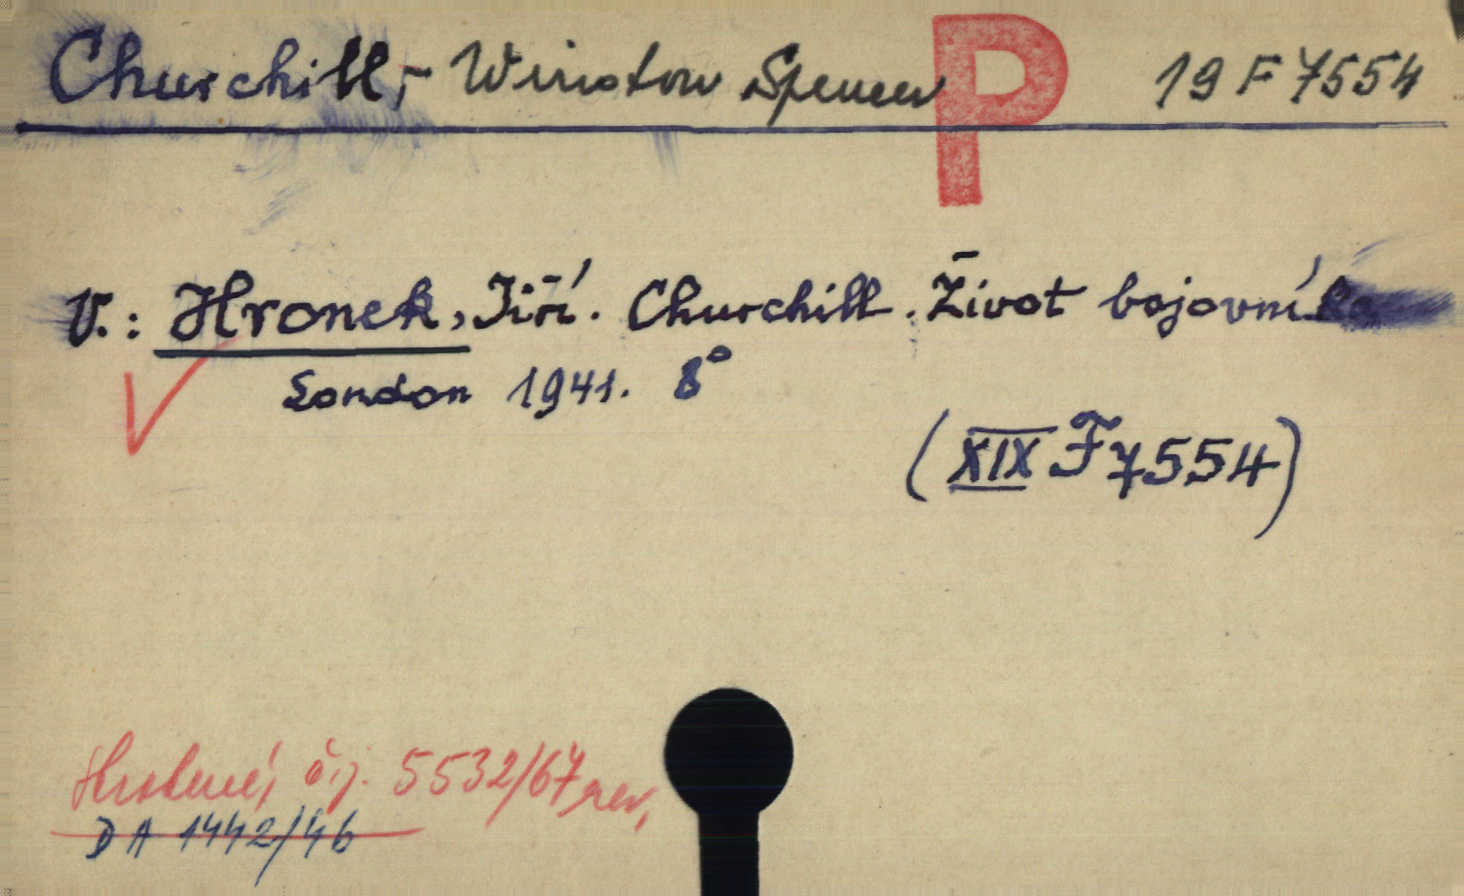 Churchill, - Winston Spencer P 19 F 7554
V.: Hronek, Jiří. Churchill. Život bojovníka
London 1941. 8°
(XIX F 7554)
čj. 5532/67 rev.
DA 1442/46